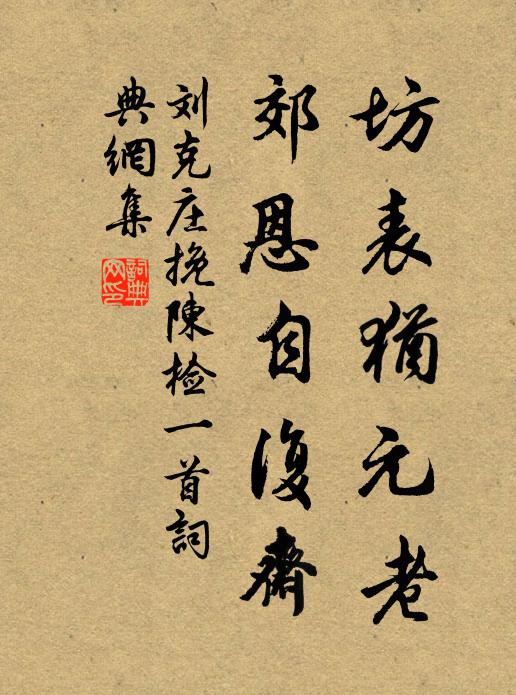 坊表犹元老
郊恩自復齋
刘克庄挽陳检一首詞
典網集
詞典網印